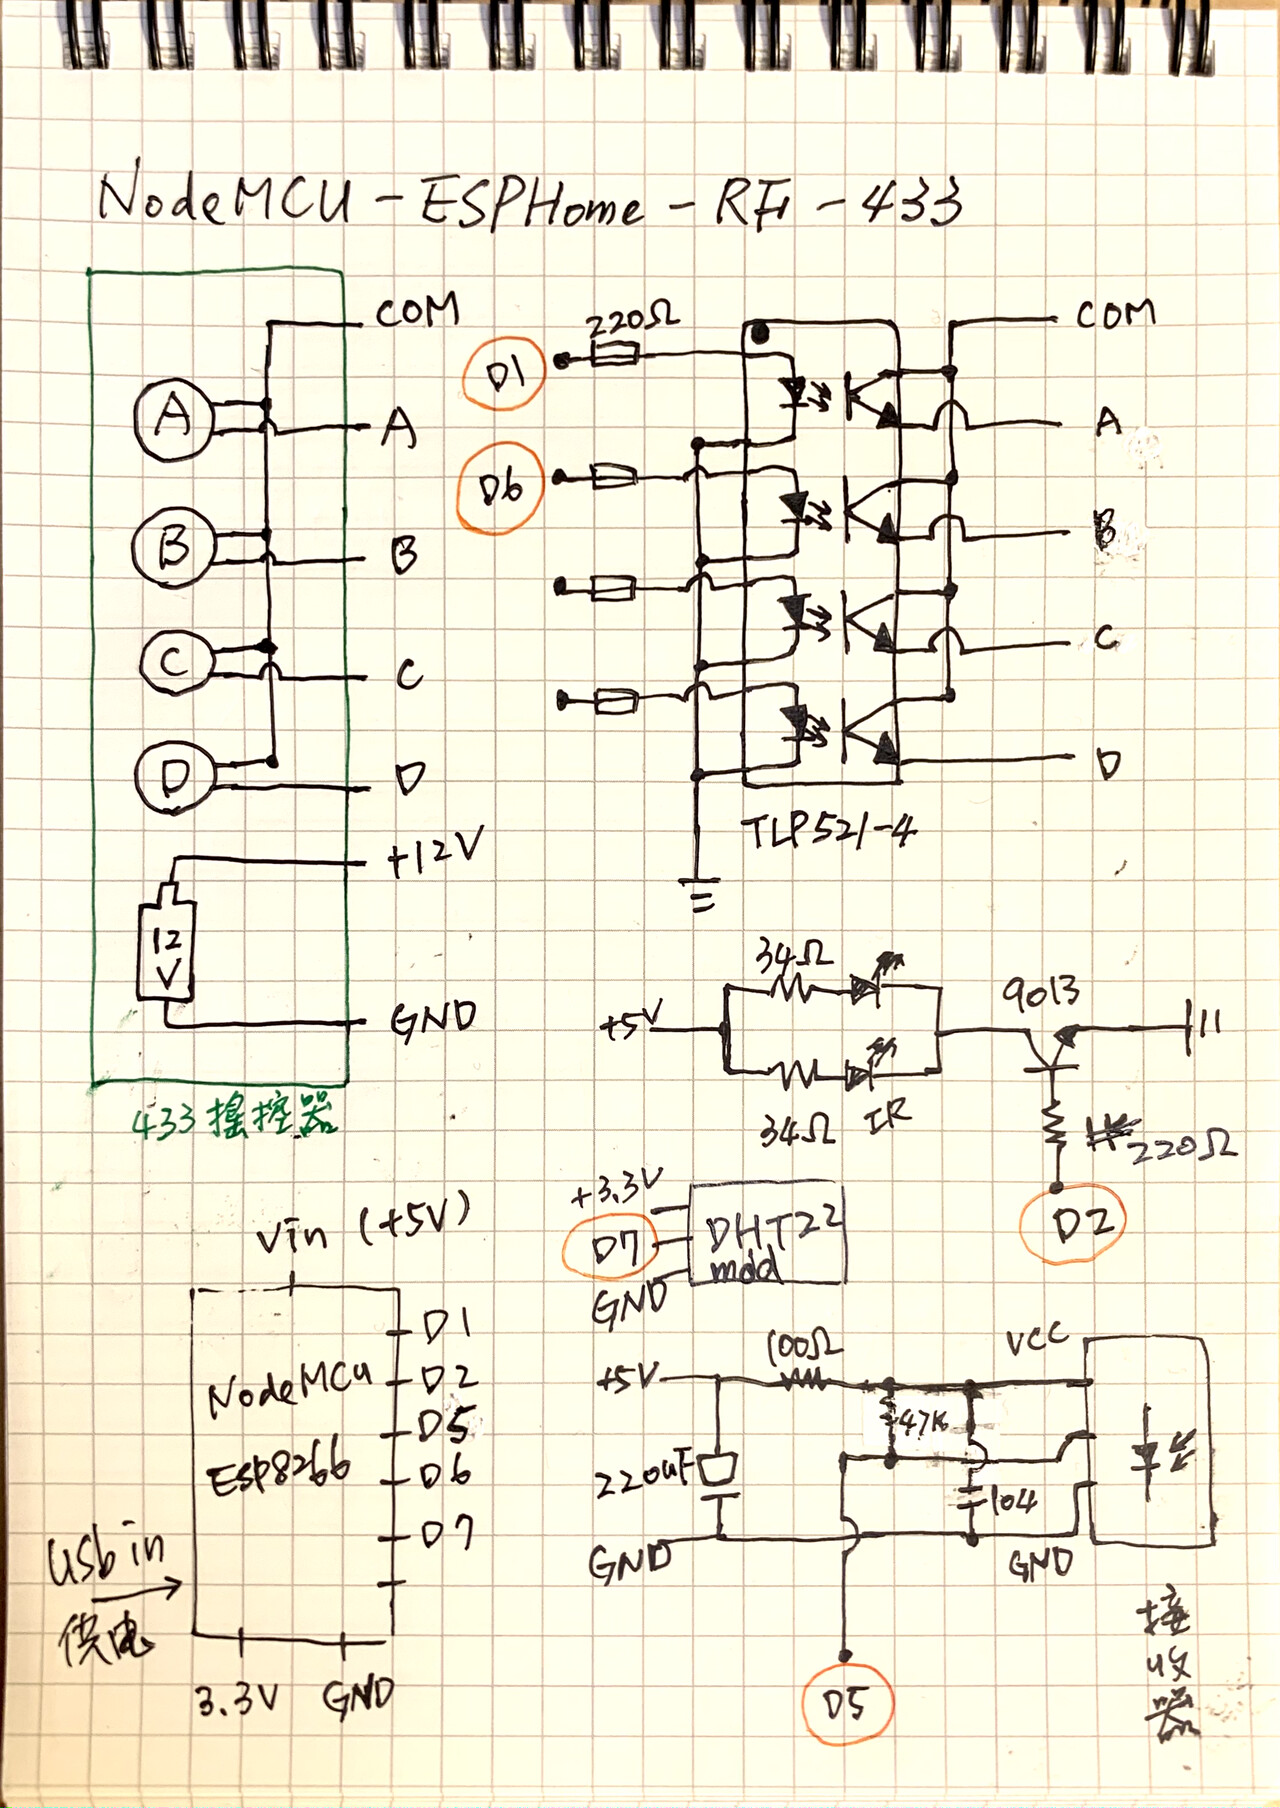 NodeMCU - ESPHome - RF - 433
COM
A
A
B
B
C
C
D
D
+12V
12
V
GND
433 搖控器
220Ω
D1
D6
COM
A
B
C
D
TLP521-4
34Ω
+5V
34Ω
IR
9013
220Ω
D2
+3.3V
D7
GND
DHT22
mod
Vin (+5V)
NodeMCU
ESP8266
D1
D2
D5
D6
D7
USb in
供电
3.3V
GND
100Ω
VCC
+5V
47K
220uF
104
GND
GND
D5
接
收
器